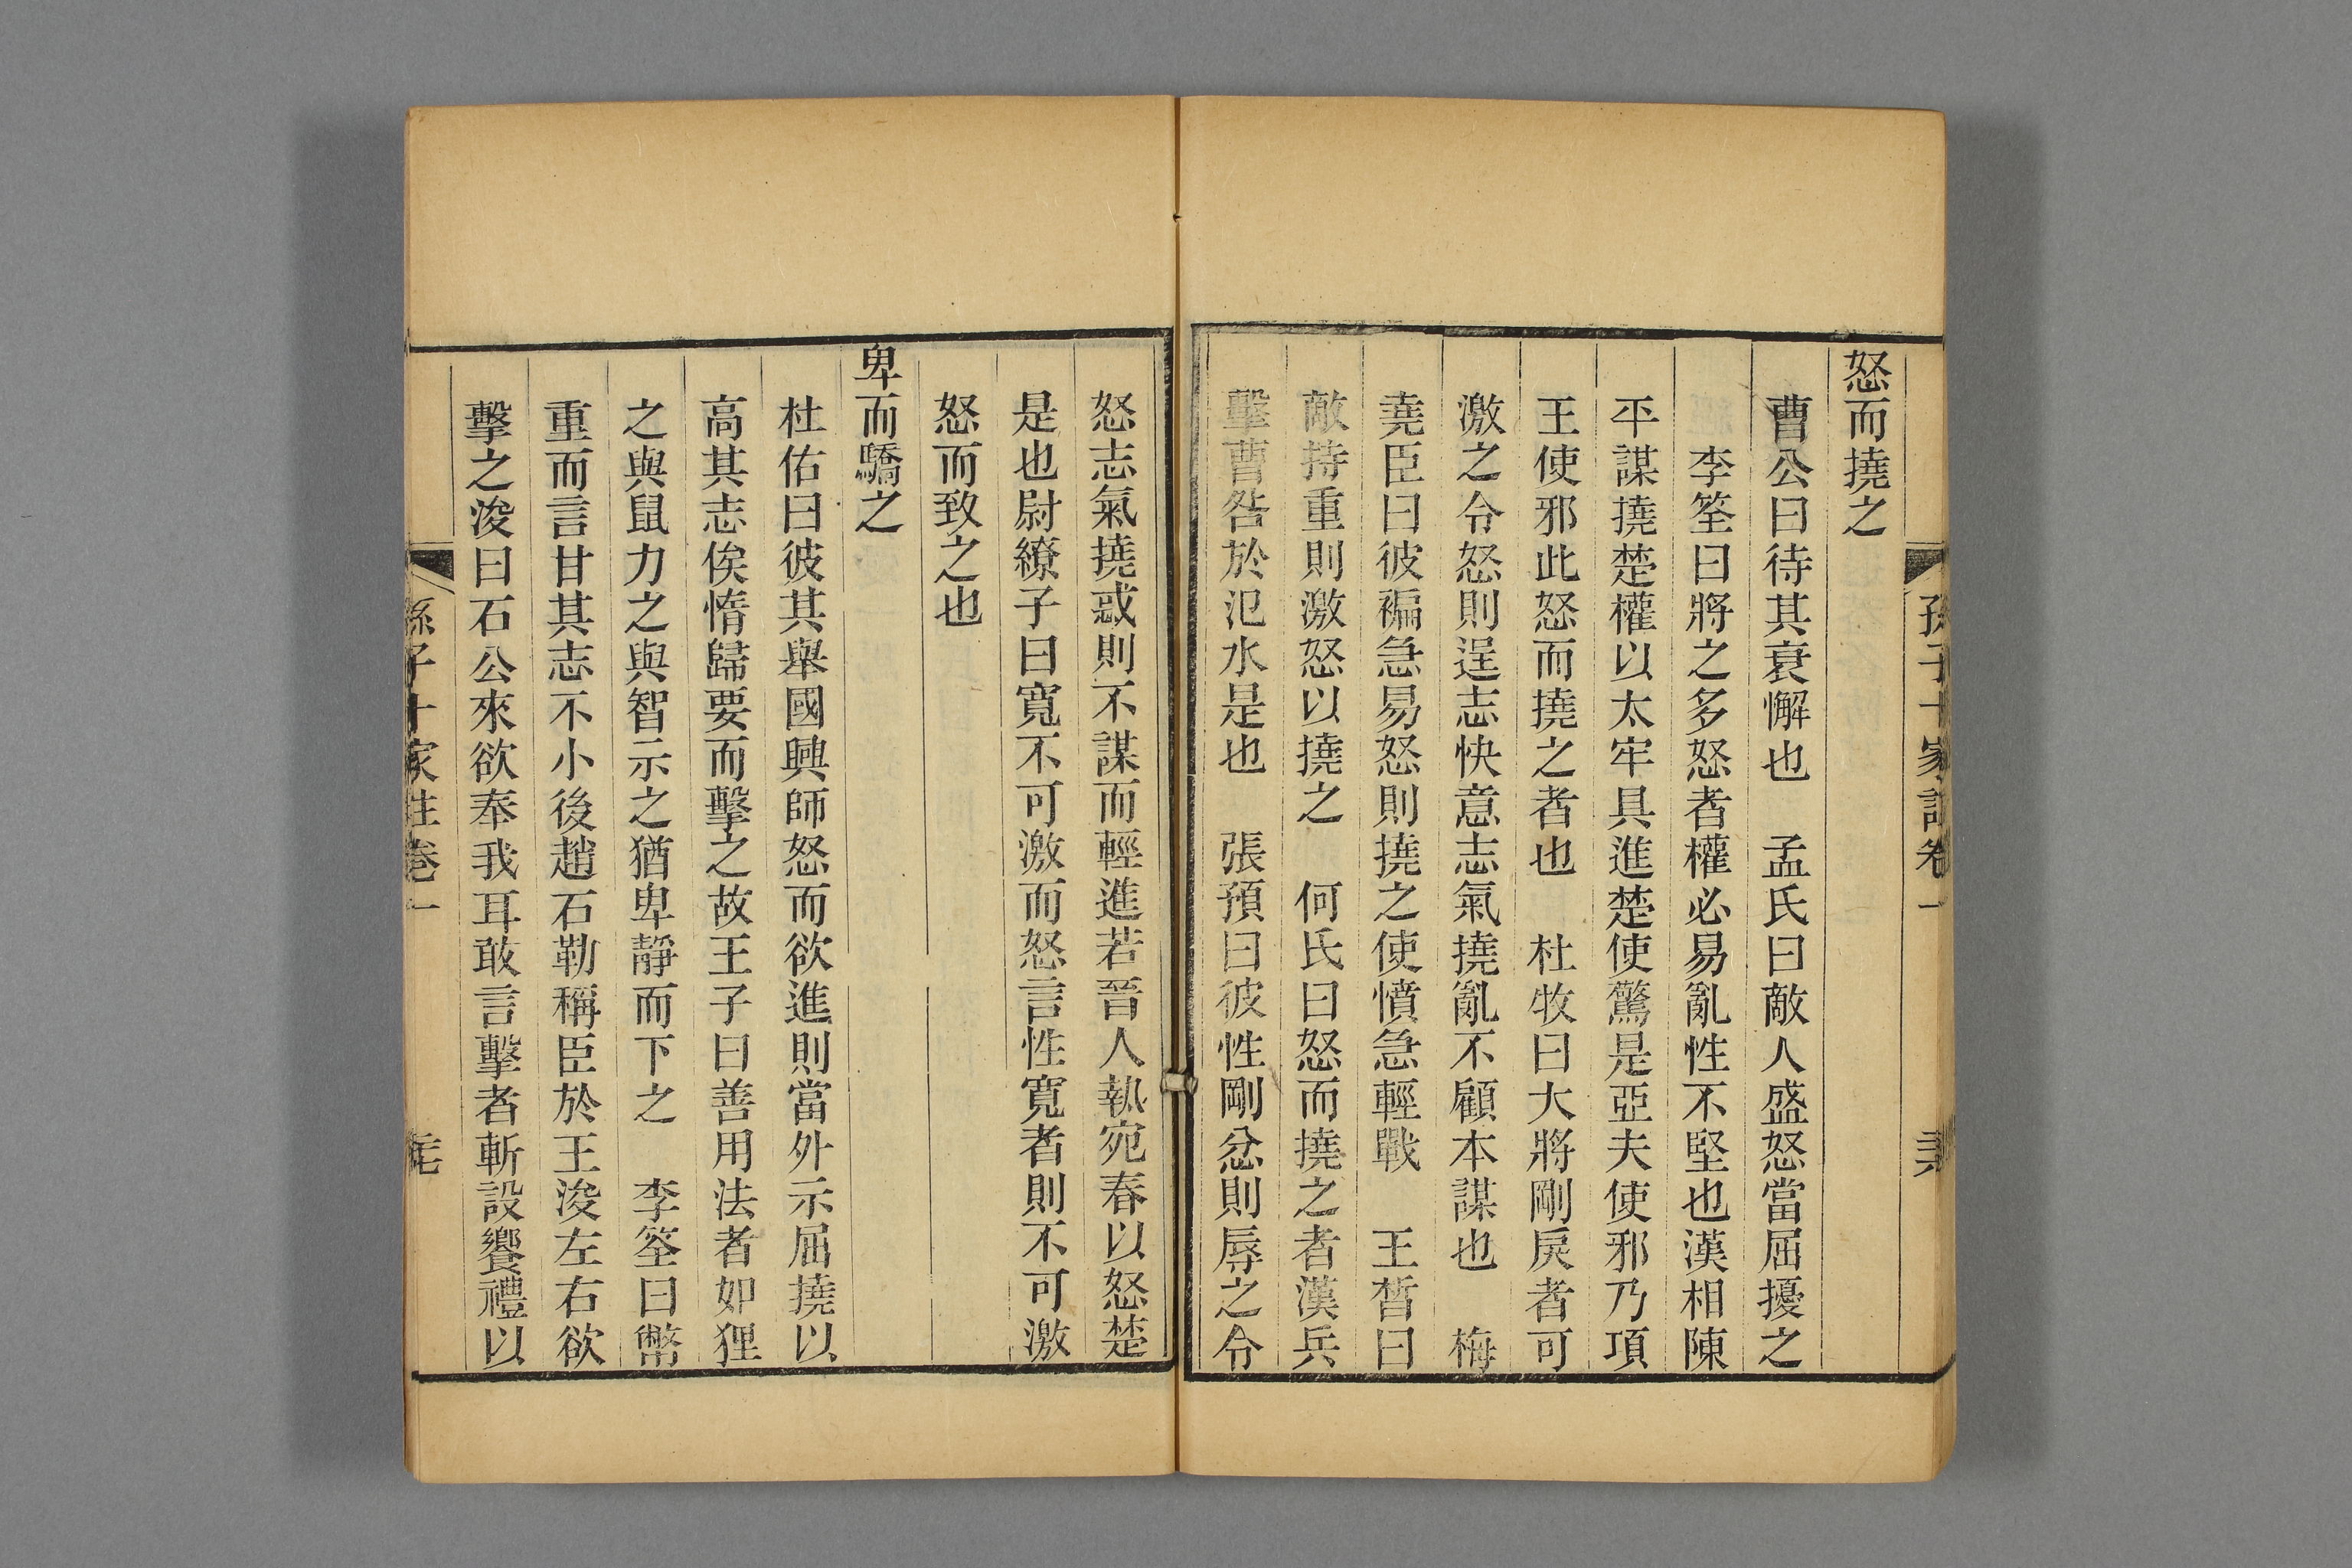 怒而撓之
曹公曰待其衰懈也　孟氏曰敵人盛怒當屈擾之
李筌曰將之多怒者權必易亂性不堅也漢相陳
平謀撓楚權以太牢具進楚使驚是亞夫使邪乃項
王使邪此怒而撓之者也　杜牧曰大將剛戾者可
激之令怒則逞志快意志氣撓亂不顧本謀也　梅
堯臣曰彼褊急易怒則撓之使憤急輕戰　王晳曰
敵持重則激怒以撓之　何氏曰怒而撓之者漢兵
擊曹咎於汜水是也　張預曰彼性剛忿則辱之令
怒志氣撓惑則不謀而輕進若晉人執宛春以怒楚
是也尉繚子曰寬不可激而怒言性寬者則不可激
怒而致之也
卑而驕之
杜佑曰彼其舉國興師怒而欲進則當外示屈撓以
高其志俟惰歸要而擊之故王子曰善用法者如狸
之與鼠力之與智示之猶卑靜而下之　李筌曰幣
重而言甘其志不小後趙石勒稱臣於王浚左右欲
擊之浚曰石公來欲奉我耳敢言擊者斬設饗禮以
孫子十家註卷一